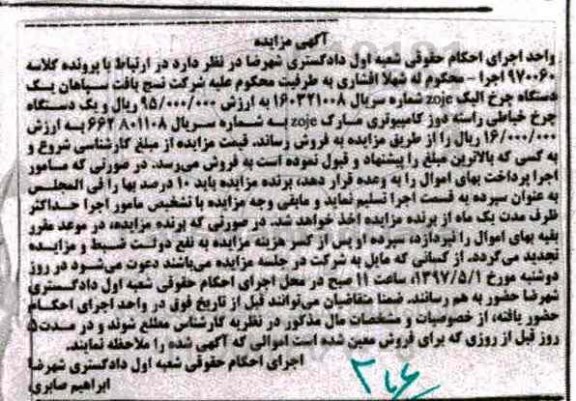 آگهی مزایده
واحد اجرای احکام حقوقی شعبه اول دادگستری شهرضا در نظر دارد در ارتباط با پرونده کلاسه
۹۷۰۰۶۰ اجرا - محکوم له شهلا افشاری به طرفیت محکوم علیه شرکت نسج بافت سپاهان یک
دستگاه چرخ الیک zoje شماره سریال ۱۶۰۳۲۱۰۰۸ به ارزش ۹۵/۰۰۰/۰۰۰ ریال و یک دستگاه
چرخ خیاطی راسته دوز کامپیوتری مارک zoje به شماره سریال ۸۰۱۱۰۸ ۶۶۲ به ارزش
۱۶/۰۰۰/۰۰۰ ریال را از طریق مزایده به فروش رساند. قیمت مزایده از مبلغ کارشناسی شروع و
به کسی که بالاترین مبلغ را پیشنهاد و قبول نموده است به فروش می‌رسد. در صورتی که مامور
اجرا پرداخت بهای اموال را به وعده قرار دهد، برنده مزایده باید ۱۰ درصد بها را فی المجلس
به عنوان سپرده به قسمت اجرا تسلیم نماید و مابقی وجه مزایده با تشخیص مامور اجرا حداکثر
ظرف مدت یک ماه از برنده مزایده اخذ خواهد شد. در صورتی که برنده مزایده، در موعد مقرر
بقیه بهای اموال را نپردازد، سپرده او پس از کسر هزینه مزایده به نفع دولت ضبط و مزایده
تجدید می‌گردد. از کسانی که مایل به شرکت در جلسه مزایده می‌باشند دعوت می‌شود در روز
دوشنبه مورخ ۱۳۹۷/۵/۱، ساعت ۱۱ صبح در محل اجرای احکام حقوقی شعبه اول دادگستری
شهرضا حضور به هم رسانند. ضمنا متقاضیان می‌توانند قبل از تاریخ فوق در واحد اجرای احکام
حضور یافته، از خصوصیات و مشخصات مال مذکور در نظریه کارشناس مطلع شوند و در مدت ۵
روز قبل از روزی که برای فروش معین شده است اموالی که آگهی شده را ملاحظه نمایند.
اجرای احکام حقوقی شعبه اول دادگستری شهرضا
ابراهیم صابری